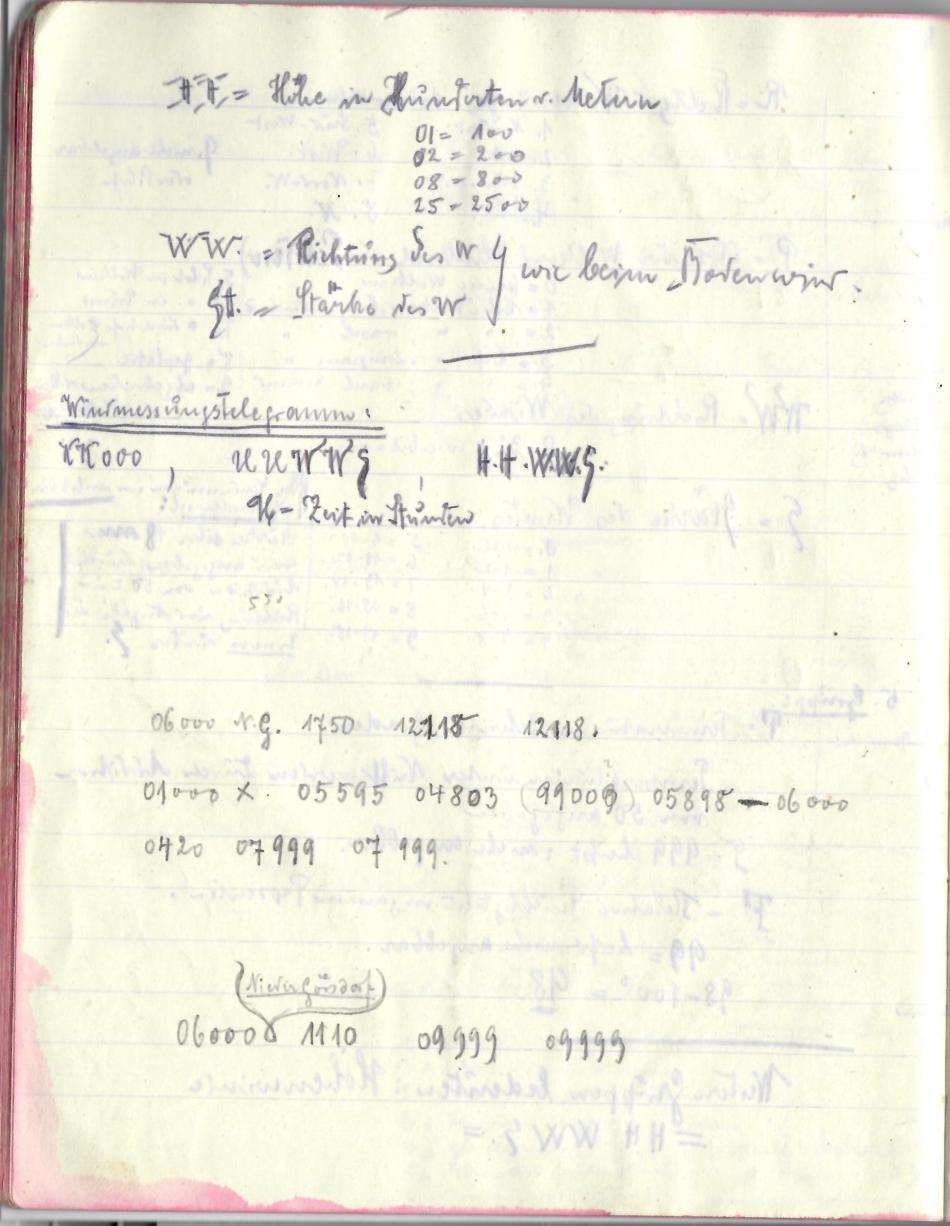 HH = Höhe in Hunderten v. Metern
01 = 100
02 = 200
08 = 800
25 = 2500
WW. = Richtung des W } wie beim Bodenwind.
St. = Stärke des W
Windmessungstelegramm:
KK000 , UUWWG , H.H.W.W.G.
U = Zeit in Stunden
55'
06000 N.G. 1750 12118 12118.
01000 X. 05595 04803 (99000) 05895 — 06000
0420 07999 07999.
(Niedergörsdorf)
06000 1110 09999 09999